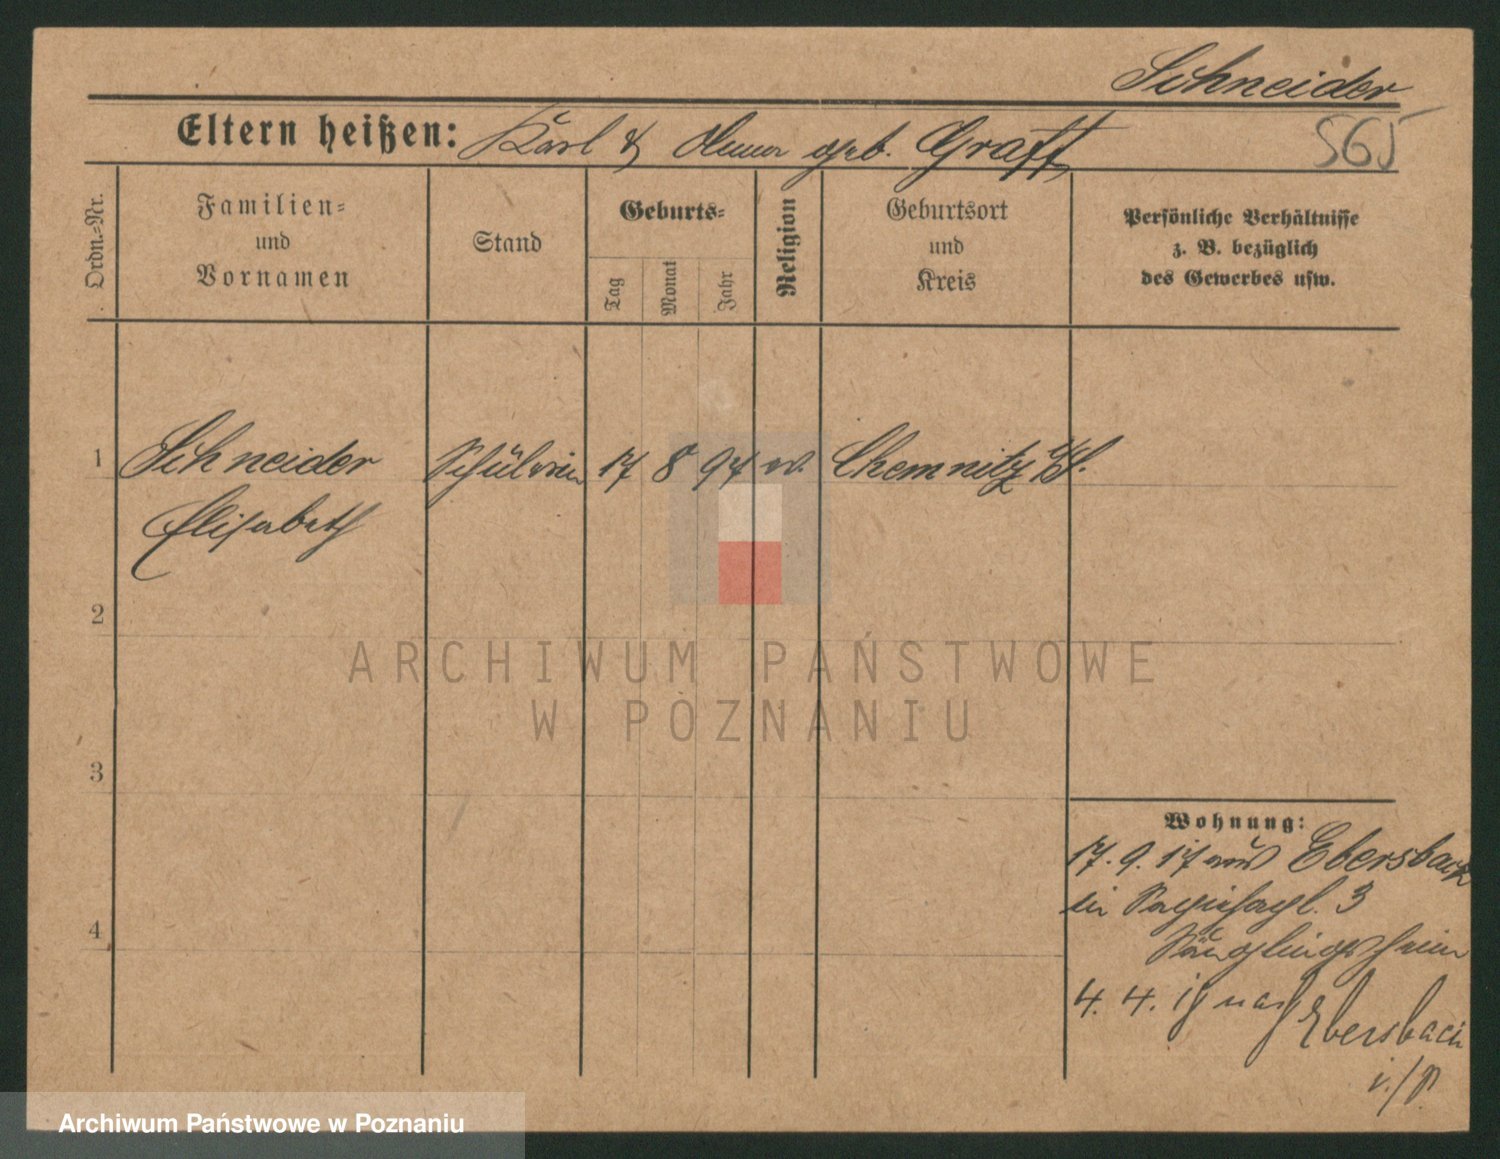 Schneider
Eltern heißen: Karl & Anna geb. Graff
565
Ordn.-Nr.
Familien-
und
Vornamen
Stand
Geburts-
Tag
Monat
Jahr
Religion
Geburtsort
und
Kreis
Persönliche Verhältnisse
z. B. bezüglich
des Gewerbes usw.
1 Schneider Schülerin 17 8 97 ev. Chemnitz i/S.
Elisabeth
2
ARCHIWUM PAŃSTWOWE
W POZNANIU
3
Wohnung:
17. 9. 17 aus Ebersbach
in 3
Säuglingsheim
4
4. 4. nach Ebersbach
i./S.
Archiwum Państwowe w Poznaniu